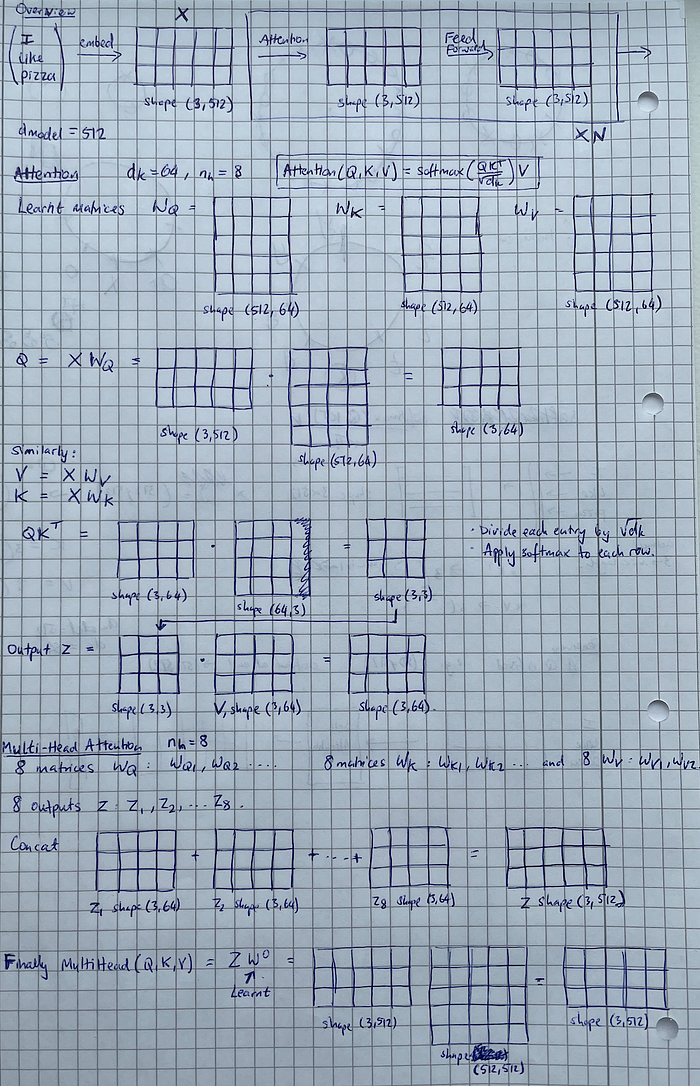 Overview
X
I
like
pizza
embed
Attention
Feed
Forward
shape (3,512)
shape (3,512)
shape (3,512)
dmodel = 512
XN
Attention
dk=64, nh = 8
Attention(Q,K,V) = softmax(QKᵀ/√dk)V
Learnt matrices WQ =
WK =
WV =
shape (512,64)
shape (512,64)
shape (512,64)
Q = XWQ =
·
=
shape (3,512)
shape (512,64)
shape (3,64)
Similarly:
V = XWV
K = XWK
QKᵀ =
·
=
· Divide each entry by √dk
· Apply softmax to each row.
shape (3,64)
shape (64,3)
shape (3,3)
Output Z =
·
=
shape (3,3)
V, shape (3,64)
shape (3,64).
Multi-Head Attention nh=8
8 matrices WQ : WQ1, WQ2 .... 8 matrices WK : WK1, WK2 ... and 8 WV : WV1, WV2
8 outputs Z : Z1, Z2, ... Z8.
Concat
+
+ ... +
=
Z1 shape (3,64)
Z2 shape (3,64)
Z8 shape (3,64)
Z shape (3,512)
Finally MultiHead(Q,K,V) = ZW⁰ =
=
↑
Learnt
shape (3,512)
shape
(512,512)
shape (3,512)